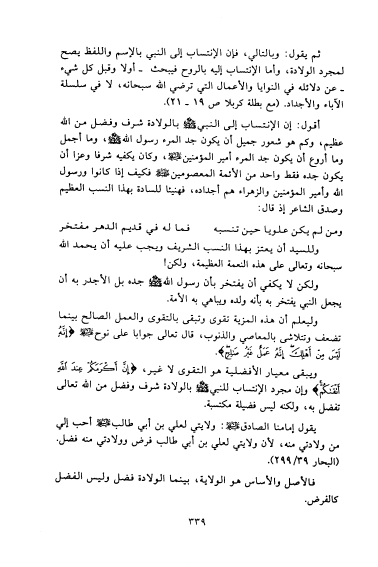 ثم يقول: وبالتالي، فإن الإنتساب إلى النبي بالإسم واللفظ يصح
لمجرد الولادة، وأما الإنتساب إليه بالروح فيبحث ـ أولا وقبل كل شيء
ـ عن دلائله في النوايا والأعمال التي ترضي الله سبحانه، لا في سلسلة
الآباء والأجداد. (مع بطلة كربلا ص ١٩ ـ ٢١).
أقول: إن الإنتساب إلى النبي ﷺ بالولادة شرف وفضل من الله
عظيم، وكم هو شعور جميل أن يكون جد المرء رسول الله ﷺ، وما أجمل
وما أروع أن يكون جد المرء أمير المؤمنين، وكان يكفيه شرفا وعزا أن
يكون جده فقط واحد من الأئمة المعصومين فكيف إذا كانوا ورسول
الله وأمير المؤمنين والزهراء هم أجداده، فهنيئا للسادة بهذا النسب العظيم
وصدق الشاعر إذ قال:
ومن لم يكن علويا حين تنسبه فما له في قديم الدهر مفتخر
وللسيد أن يعتز بهذا النسب الشريف ويجب عليه أن يحمد الله
سبحانه وتعالى على هذه النعمة العظيمة، ولكن!
ولكن لا يكفي أن يفتخر بأن رسول الله ﷺ جده بل الأجدر به أن
يجعل النبي يفتخر به بأنه ولده ويباهي به الأمة.
وليعلم أن هذه المزية تقوى وتبقى بالتقوى والعمل الصالح بينما
تضعف وتتلاشى بالمعاصي والذنوب، قال تعالى جوابا على نوح ﴿إِنَّهُ
لَيْسَ مِنْ أَهْلِكَ إِنَّهُ عَمَلٌ غَيْرُ صَالِحٍ﴾.
ويبقى معيار الأفضلية هو التقوى لا غير، ﴿إِنَّ أَكْرَمَكُمْ عِندَ اللَّهِ
أَتْقَاكُمْ﴾ وإن مجرد الإنتساب للنبي ﷺ بالولادة شرف وفضل من الله تعالى
تفضل به، ولكنه ليس فضيلة مكتسبة.
يقول إمامنا الصادق: ولايتي لعلي بن أبي طالب أحب إلي
من ولادتي منه، لأن ولايتي لعلي بن أبي طالب فرض وولادتي منه فضل.
(البحار ٣٩/ ٢٩٩).
فالأصل والأساس هو الولاية، بينما الولادة فضل وليس الفضل
كالفرض.
٣٣٩